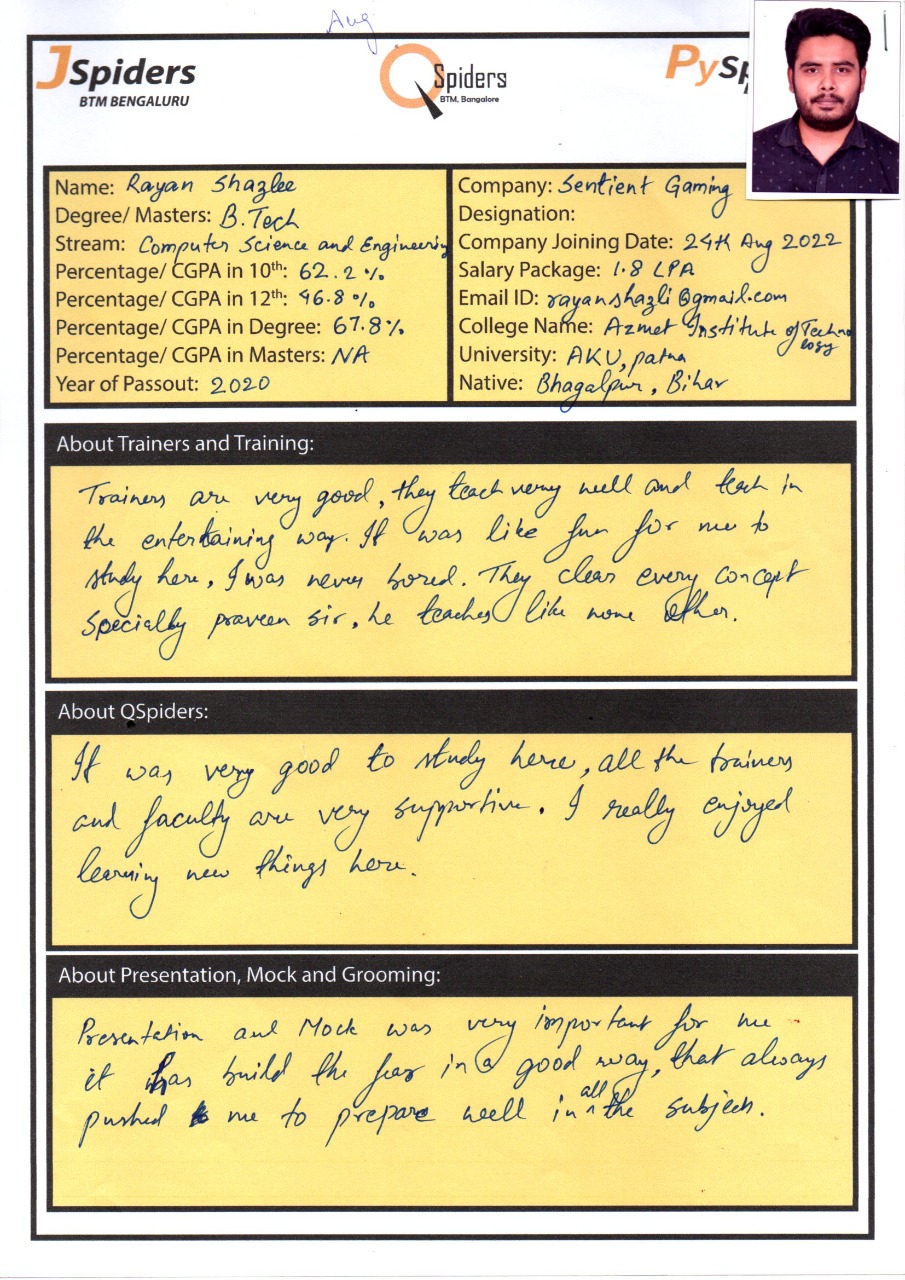 Aug
JSpiders
BTM BENGALURU
QSpiders
BTM, Bangalore
PySp
Name: Rayan Shazlee
Degree/ Masters: B.Tech
Stream: Computer Science and Engineering
Percentage/ CGPA in 10th: 62.2 %
Percentage/ CGPA in 12th: 46.8 %
Percentage/ CGPA in Degree: 67.8 %
Percentage/ CGPA in Masters: NA
Year of Passout: 2020
Company: Sentient Gaming
Designation:
Company Joining Date: 24th Aug 2022
Salary Package: 1.8 LPA
Email ID: rayanshazli@gmail.com
College Name: Azmet Institute of Technology
University: AKU, patna
Native: Bhagalpur, Bihar
About Trainers and Training:
Trainers are very good, they teach very well and teach in
the entertaining way. It was like fun for me to
study here, I was never bored. They clear every concept
specially praveen sir, he teaches like none other.
About QSpiders:
It was very good to study here, all the trainers
and faculty are very supportive. I really enjoyed
learning new things here.
About Presentation, Mock and Grooming:
Presentation and Mock was very important for me
it has build the fear in a good way, that always
pushed me to prepare well in all the subjects.